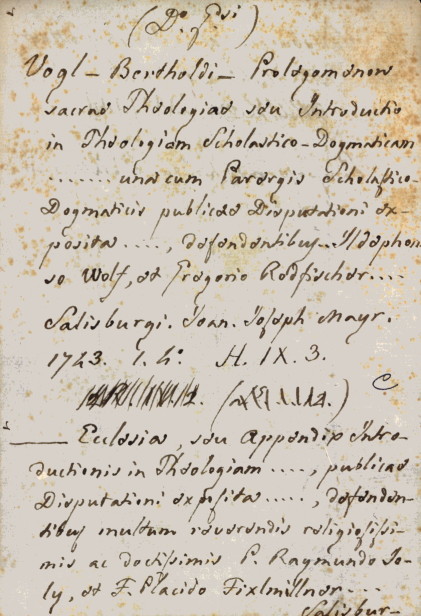 Vogl - Bertholdi - Prolegomenon
sacrae Theologiae seu Introductio
in Theologiam Scholastico-Dogmaticam
........ una cum Parergis Scholastico-
Dogmaticis publicae Disputationi ex-
posita ...., defendentibus Ildephon
so Wolf, et Gregorio Rodfischer....
Salisburgi. Joan. Joseph Mayr.
1743. 1. 4º. H. IX. 3.
C
—— Ecclesia, seu Appendix Intro-
ductionis in Theologiam ...., publicae
Disputationi exposita ....., defenden-
tibus multum reverendis religiosissi-
mis ac doctissimis P. Raymundo Jo-
ly, et F. Placido Fixlmillner...
Salisbur-